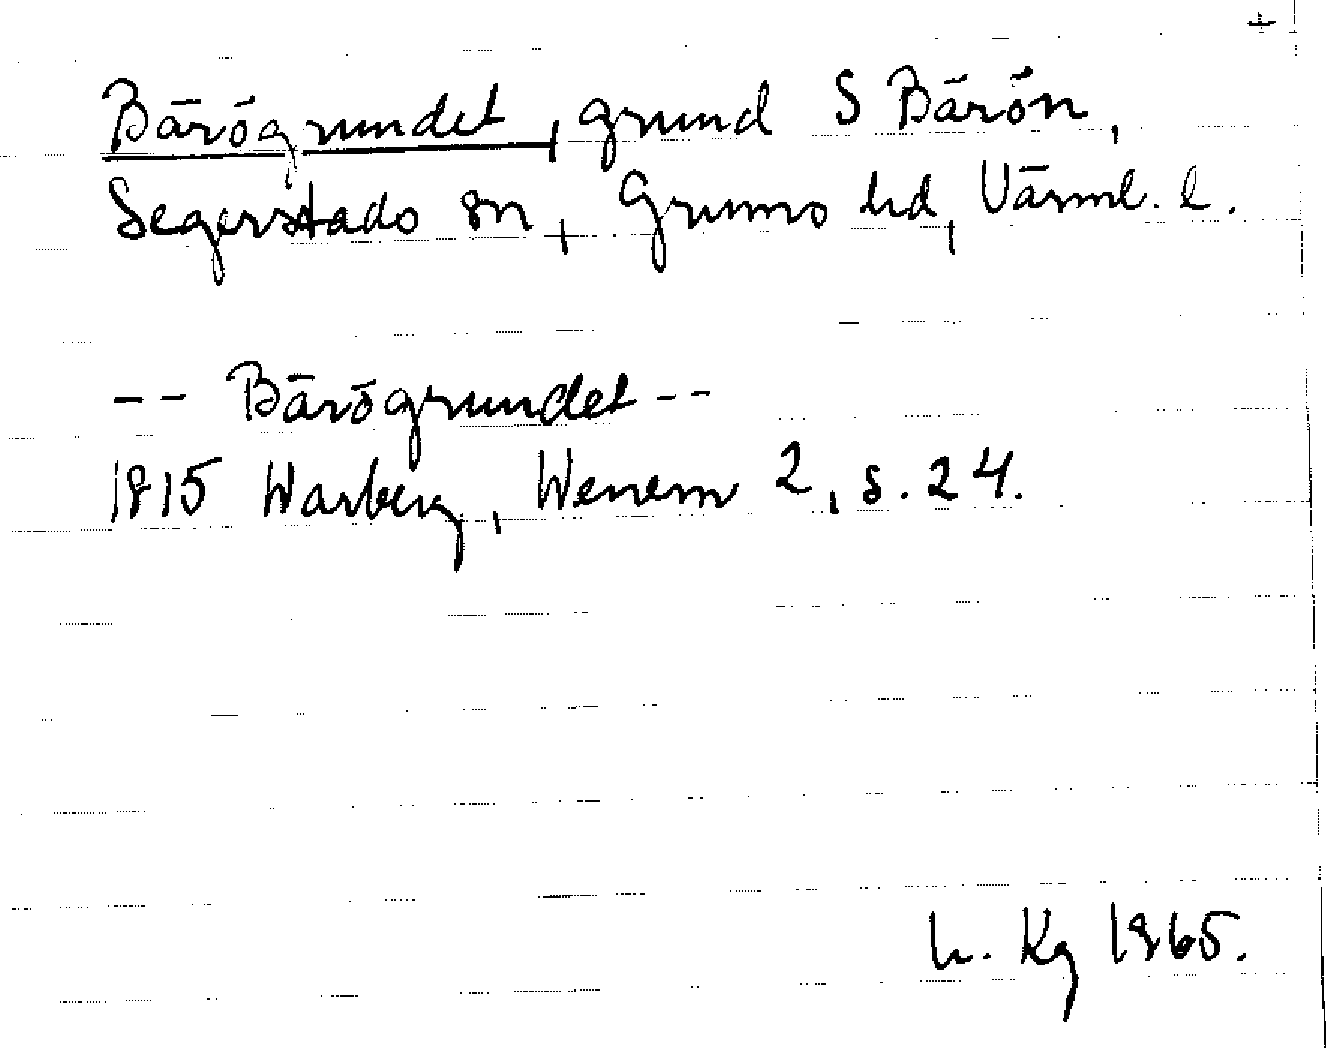 +
Bärögrundet, grund S Bärön,
Segerstads sn, Grums hd, Värml. l.
-- Bärögrundet --
1815 Warberg, Wenern 2, s. 24.
Kg 1965.